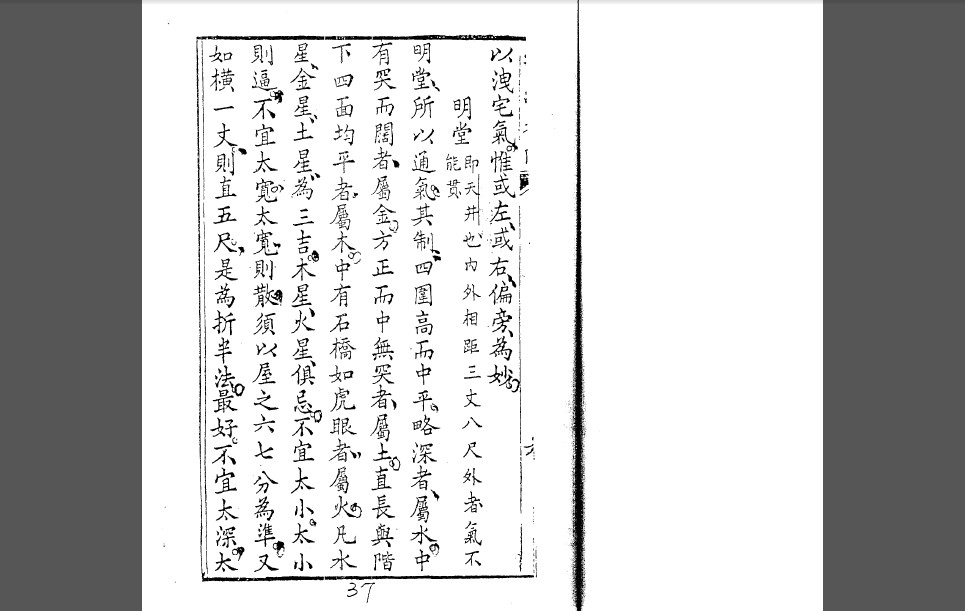 以洩宅氣。惟或左、或右、偏旁、為妙。
明堂 即天井也、內外相距三丈八尺外者氣不能貫
明堂、所以通氣。其制、四圍高而中平。略深者、屬水。中
有突而闊者、屬金。方正而中無突者、屬土。直長與階
下四面均平者、屬木。中有石橋如虎眼者、屬火。凡水
星、金星、土星、為三吉。木星、火星、俱忌。不宜太小。太小
則逼。不宜太寬。太寬、則散。須以屋之六七分為準。又
如橫一丈、則直五尺、是為折半法。最好。不宜太深。太
37